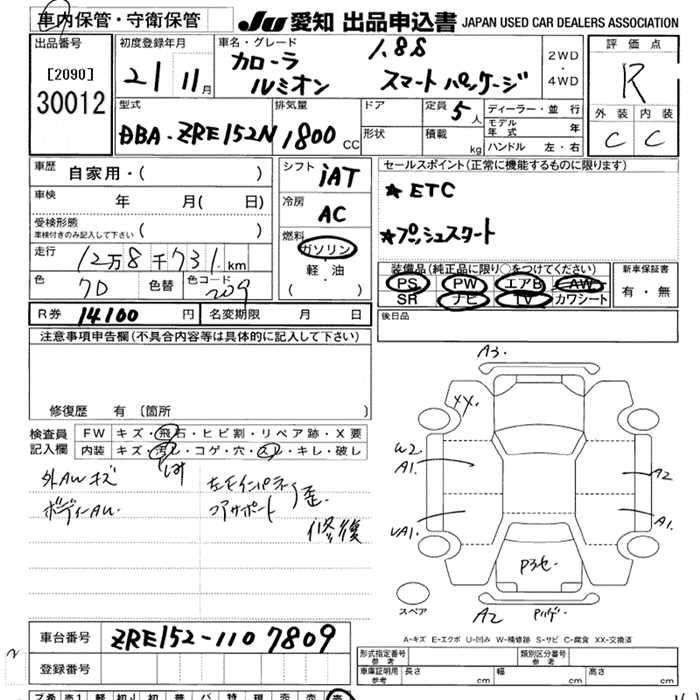 車内保管・守衛保管
JU 愛知 出品申込書 JAPAN USED CAR DEALERS ASSOCIATION
出品番号
[2090]
30012
初度登録年月
21 11月
車名・グレード
カローラ
ルミオン
1.8S
スマートパッケージ
2WD
・
4WD
評価点
R
外装 内装
C C
型式
DBA-ZRE152N
排気量
1800 CC
ドア
形状
定員 5人
積載 kg
ディーラー・並 行
モデル年式 年
ハンドル 左・右
車歴 自家用・( )
車検 年 月( 日)
受検形態
車検付きのみ記入して下さい ( )
走行 12万8千731km
色 70 色替 色コード 209
シフト
iAT
冷房
AC
燃料
ガソリン
軽・油
( ・ )
R券 14100 円 名変期限 月 日
セールスポイント(正常に機能するものに限ります)
★ ETC
★プッシュスタート
装備品(純正品に限り○をつけてください)
PS PW エアB AW
SR ナビ TV カワシート
新車保証書
有・無
後日品
注意事項申告欄(不具合内容等は具体的に記入して下さい)
修復歴 有 〔箇所 〕
検査員
記入欄
FW キズ・飛石・ヒビ割・リペア跡・X要
内装 キズ・汚レ・コゲ・穴・スレ・キレ・破レ
外AWキズ
ボディーAU
コアサポート
歪
修復
A3.
XX.
W2
A1.
UA1.
A2
A1.
P3セ
A2
スペア
A-キズ E-エクボ U-凹み W-補修跡 S-サビ C-腐食 XX-交換済
車台番号 ZRE152-1107809
登録番号
形式指定番号
参考
類別区分番号
参考
車庫証明用
参考
長さ cm 幅 cm 高さ cm